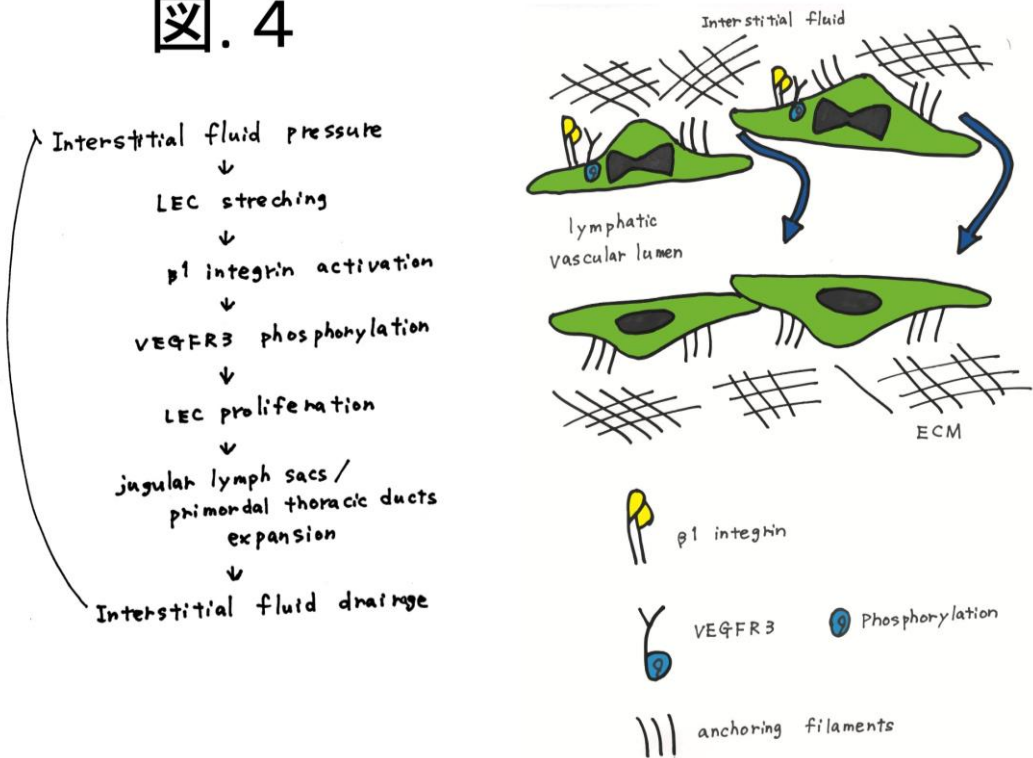 図. 4
Interstitial fluid pressure
↓
LEC streching
↓
β1 integrin activation
↓
VEGFR3 phosphorylation
↓
LEC proliferation
↓
jugular lymph sacs /
primordal thoracic ducts
expansion
↓
Interstitial fluid drainage
Interstitial fluid
lymphatic
vascular lumen
ECM
β1 integrin
VEGFR3
Phosphorylation
anchoring filaments